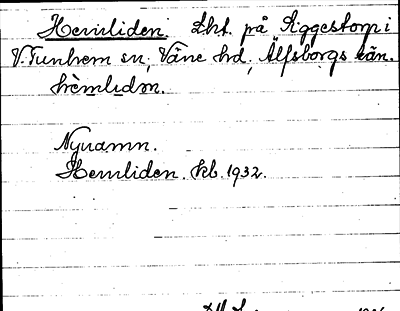 Hemliden. Lht. på Äggestorp i
V. Tunhem sn, Väne hd, Älfsborgs län.
hèmlıdən.
Nynamn.
Hemliden. kb. 1932.